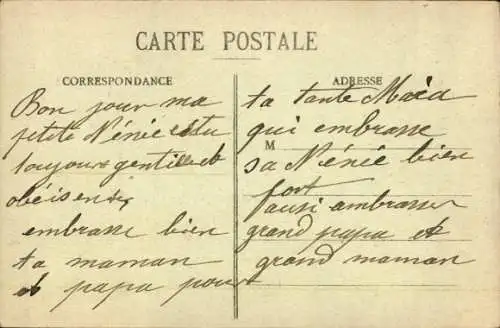 CARTE POSTALE
CORRESPONDANCE
Bon jour ma
petite Nénié es tu
toujours gentille et
obéisente
embrasse bien
ta maman
et papa pour
ADRESSE
ta tante Maria
qui embrasse
M
sa Niénié bien
fort
ausi ambrasser
grand papa et
grand maman